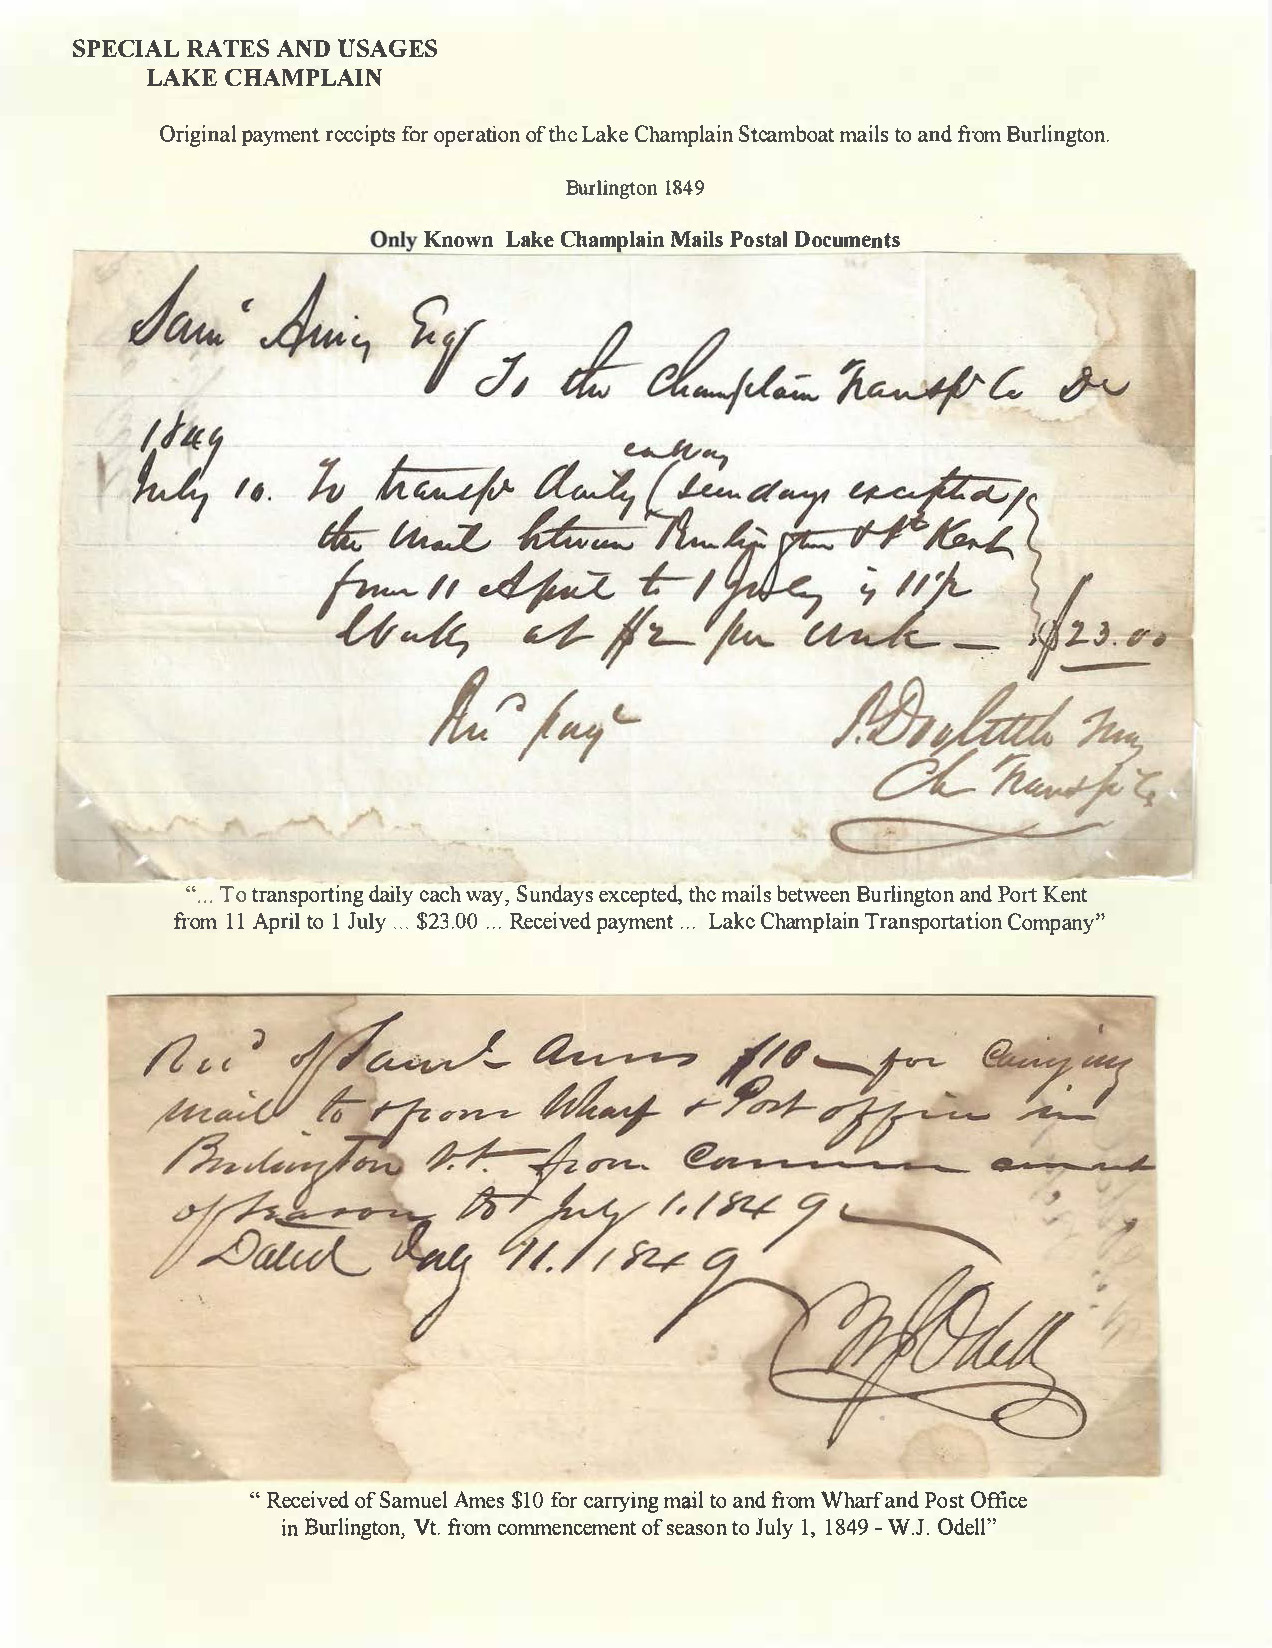 SPECIAL RATES AND USAGES
LAKE CHAMPLAIN
Original payment receipts for operation of the Lake Champlain Steamboat mails to and from Burlington.
Burlington 1849
Only Known Lake Champlain Mails Postal Documents
Saml Ames Esqr
To the Champlain Transpn Co Dr
1849
each way
July 10. To transpg daily (sundays excepted)
the mail between Burlington & Pt Kent
from 11 April to 1 July is 11 1/2
Weeks at $2 per week — $23.00
Recd payt
P. Doolittle
Ch Transpn Co
"... To transporting daily each way, Sundays excepted, the mails between Burlington and Port Kent
from 11 April to 1 July ... $23.00 ... Received payment ... Lake Champlain Transportation Company"
Recd of Saml Ames $10 — for Carrying
mail to & from Wharf & Post office in
Burlington V.t. from Commencement
of season to July 1. 1849
Dated July 11. 1849
W J Odell
" Received of Samuel Ames $10 for carrying mail to and from Wharf and Post Office
in Burlington, Vt. from commencement of season to July 1, 1849 - W.J. Odell"